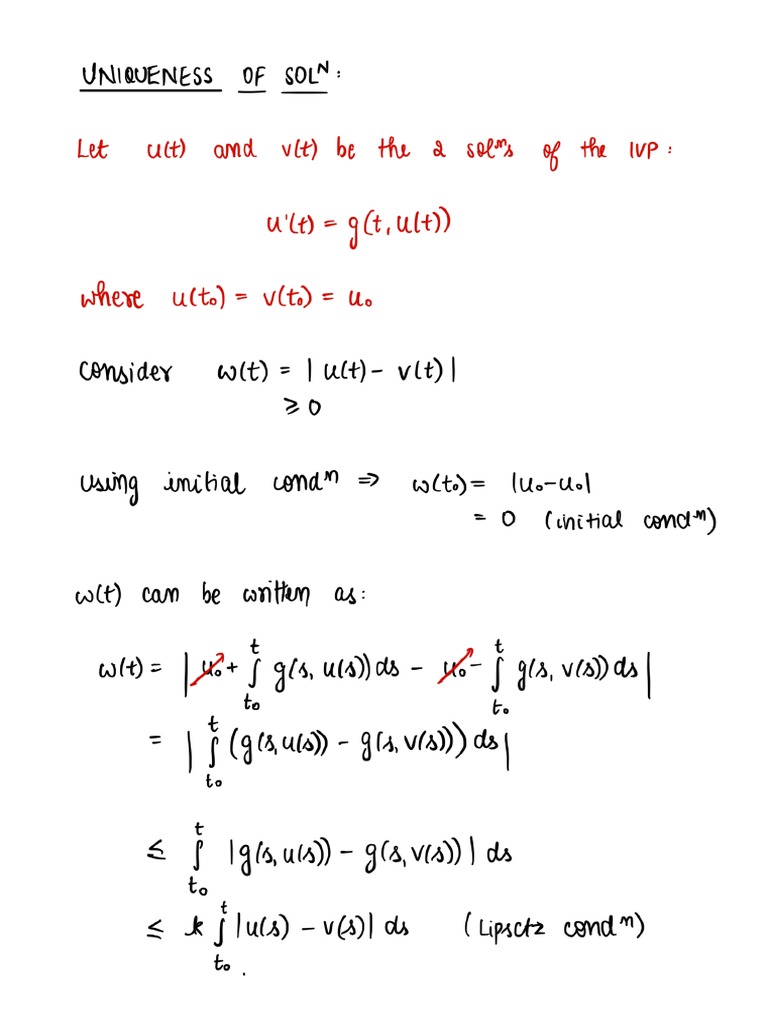 UNIQUENESS OF SOLᴺ:
Let u(t) and v(t) be the 2 solⁿs of the IVP:
u'(t) = g(t, u(t))
where u(t₀) = v(t₀) = u₀
consider w(t) = | u(t) - v(t) |
≥ 0
using initial condⁿ ⇒ w(t₀) = |u₀-u₀|
= 0 (initial condⁿ)
w(t) can be written as:
w(t) = | u₀ + ∫_{t₀}^{t} g(s, u(s)) ds - u₀ - ∫_{t₀}^{t} g(s, v(s)) ds |
= | ∫_{t₀}^{t} (g(s, u(s)) - g(s, v(s))) ds |
≤ ∫_{t₀}^{t} |g(s, u(s)) - g(s, v(s))| ds
≤ k ∫_{t₀}^{t} |u(s) - v(s)| ds (Lipsctz condⁿ)